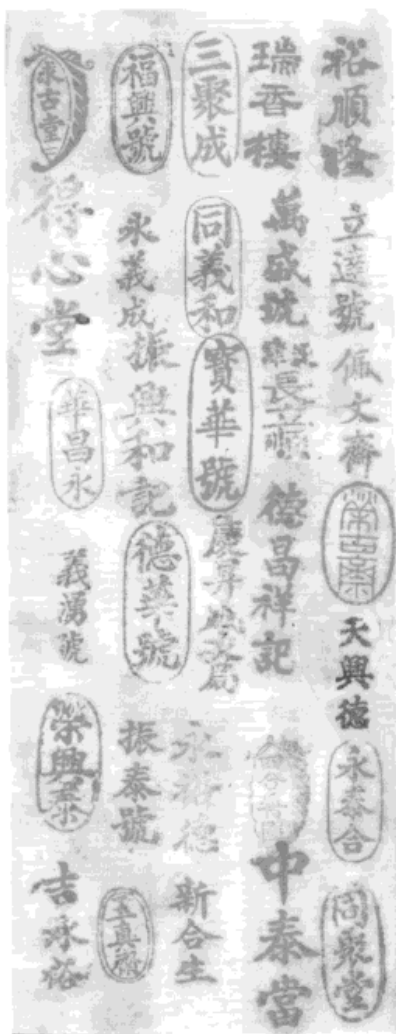 裕順隆
立達號
佩文齋
天興德
永泰合
同聚堂
瑞香樓
萬盛號
德昌祥記
中泰當
三聚成
同義和
寶華號
慶昇
永裕德
新合生
福興號
永義成
振興和記
德華號
振泰號
永古堂
得心堂
華昌永
義湧號
榮興泰
吉永裕